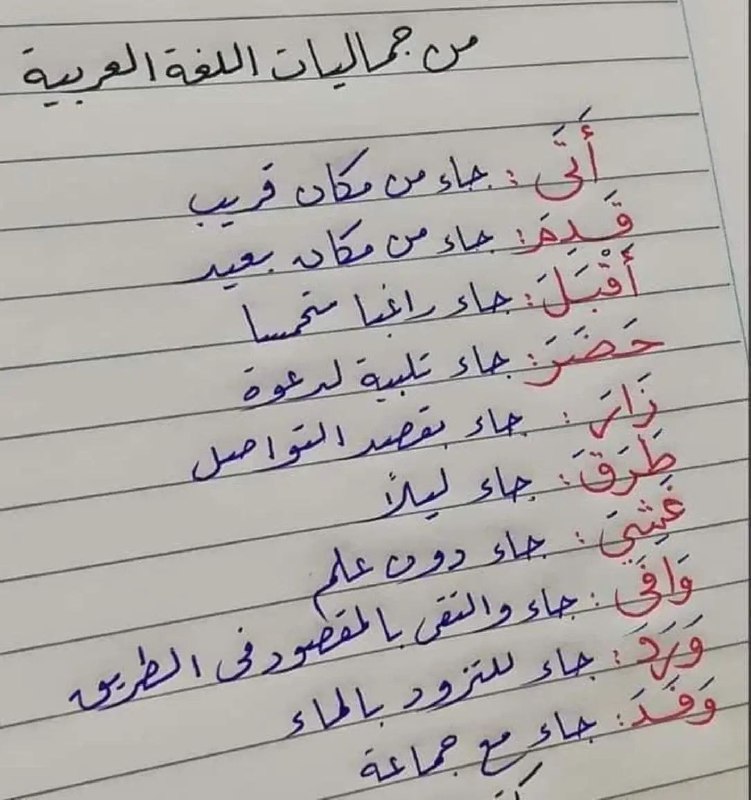 من جماليات اللغة العربية
أَتَى : جاء من مكان قريب
قَدِمَ : جاء من مكان بعيد
أَقْبَلَ : جاء راغبا متحمسا
حَضَرَ : جاء تلبية لدعوة
زَارَ : جاء بقصد التواصل
طَرَقَ : جاء ليلاً
غَشِيَ : جاء دون علم
وَافَى : جاء والتقى بالمقصود في الطريق
وَرَدَ : جاء للتزود بالماء
وَفَدَ : جاء مع جماعة